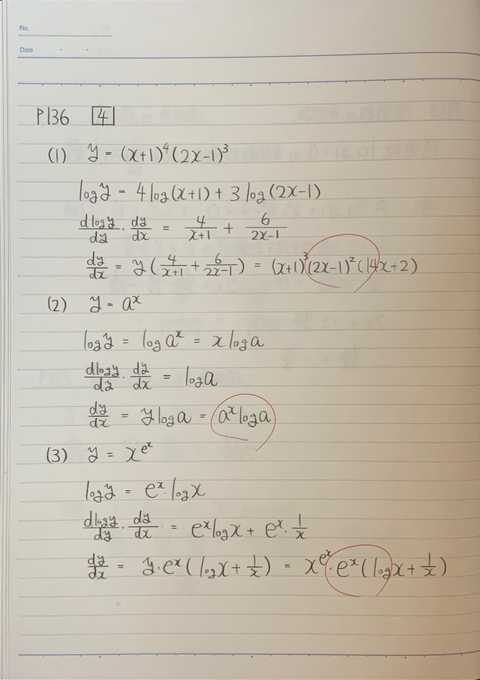 No.
Date
P136 4
(1) y = (x+1)⁴(2x-1)³
log y = 4 log(x+1) + 3 log(2x-1)
d log y/dy · dy/dx = 4/(x+1) + 6/(2x-1)
dy/dx = y(4/(x+1) + 6/(2x-1)) = (x+1)³(2x-1)²(14x+2)
(2) y = aˣ
log y = log aˣ = x log a
d log y/dy · dy/dx = log a
dy/dx = y log a = aˣ log a
(3) y = x^(eˣ)
log y = eˣ · log x
d log y/dy · dy/dx = eˣ log x + eˣ · 1/x
dy/dx = y · eˣ (log x + 1/x) = x^(eˣ) · eˣ (log x + 1/x)